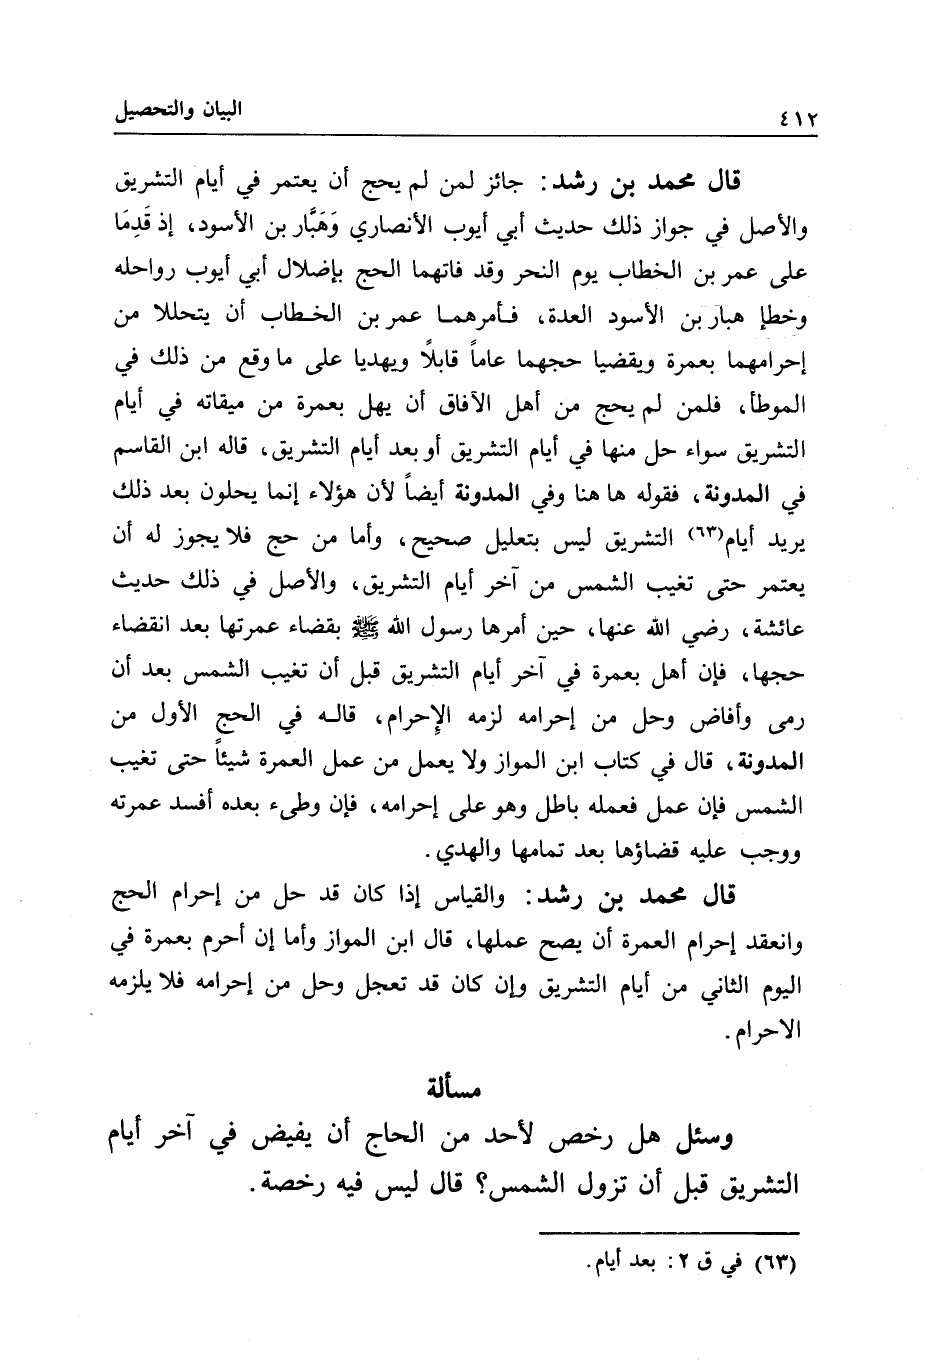 ٤١٢
البيان والتحصيل
قال محمد بن رشد: جائز لمن لم يحج أن يعتمر في أيام التشريق
والأصل في جواز ذلك حديث أبي أيوب الأنصاري وَهَبَّار بن الأسود، إذ قَدِمَا
على عمر بن الخطاب يوم النحر وقد فاتهما الحج بإضلال أبي أيوب رواحله
وخطإ هبار بن الأسود العدة، فأمرهما عمر بن الخطاب أن يتحللا من
إحرامهما بعمرة ويقضيا حجهما عاماً قابلاً ويهديا على ما وقع من ذلك في
الموطأ، فلمن لم يحج من أهل الآفاق أن يهل بعمرة من ميقاته في أيام
التشريق سواء حل منها في أيام التشريق أو بعد أيام التشريق، قاله ابن القاسم
في المدونة، فقوله ها هنا وفي المدونة أيضاً لأن هؤلاء إنما يحلون بعد ذلك
يريد أيام(٦٣) التشريق ليس بتعليل صحيح، وأما من حج فلا يجوز له أن
يعتمر حتى تغيب الشمس من آخر أيام التشريق، والأصل في ذلك حديث
عائشة، رضي الله عنها، حين أمرها رسول الله ﷺ بقضاء عمرتها بعد انقضاء
حجها، فإن أهل بعمرة في آخر أيام التشريق قبل أن تغيب الشمس بعد أن
رمى وأفاض وحل من إحرامه لزمه الإِحرام، قاله في الحج الأول من
المدونة، قال في كتاب ابن المواز ولا يعمل من عمل العمرة شيئاً حتى تغيب
الشمس فإن عمل فعمله باطل وهو على إحرامه، فإن وطىء بعده أفسد عمرته
ووجب عليه قضاؤها بعد تمامها والهدي.
قال محمد بن رشد: والقياس إذا كان قد حل من إحرام الحج
وانعقد إحرام العمرة أن يصح عملها، قال ابن المواز وأما إن أحرم بعمرة في
اليوم الثاني من أيام التشريق وإن كان قد تعجل وحل من إحرامه فلا يلزمه
الاحرام.
مسألة
وسئل هل رخص لأحد من الحاج أن يفيض في آخر أيام
التشريق قبل أن تزول الشمس؟ قال ليس فيه رخصة.
(٦٣) في ق ٢: بعد أيام.